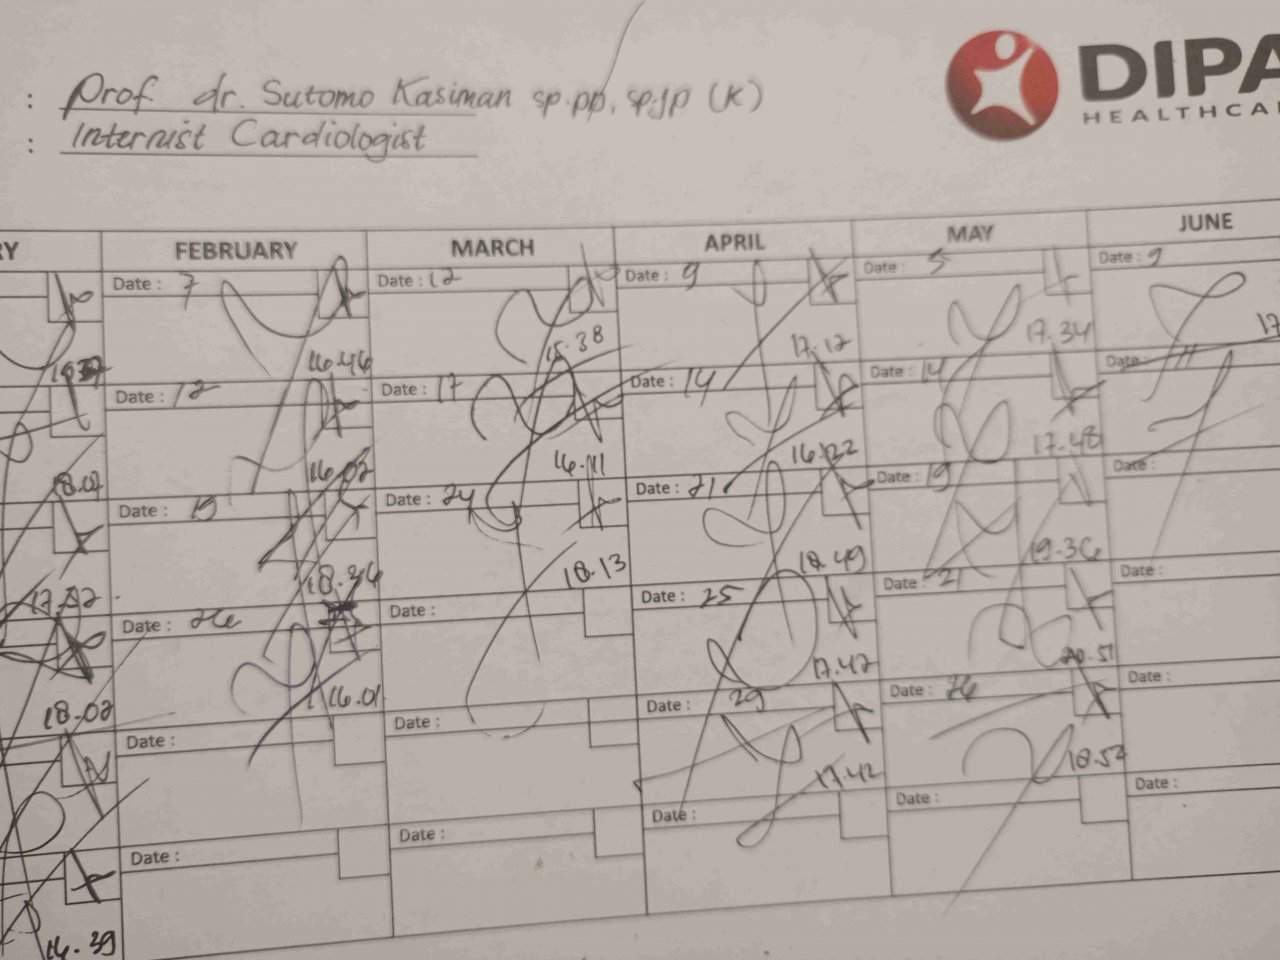 : Prof. dr. Sutomo Kasiman sp.pp, sp.jp (K)
: Internist Cardiologist
DIPA
HEALTHCA
RY FEBRUARY MARCH APRIL MAY JUNE
Date : 7 Date : 12 Date : 9 Date : 5 Date : 9
16.46 15.38 17.12 17.34 17
Date : 12 Date : 17 Date : 14 Date : 14 Date :
18.02 16.02 16.11 16.22 17.48
Date : 19 Date : 24 Date : 21 Date : 19 Date :
18.36 18.13 18.49 19.36
Date : 26 Date : Date : 25 Date : 21 Date :
18.02 16.01 17.42 20.51
Date : Date : 29 Date : 26 Date :
17.42 18.52
Date : Date : Date : Date : Date :
16.39